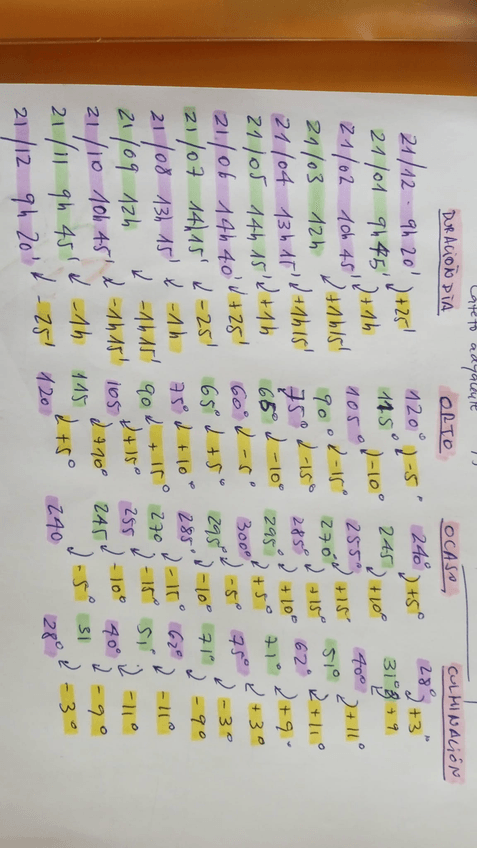 Cateto adyacente
DURACIÓN DÍA ORTO OCASO CULMINACIÓN
21/12 · 9h 20' 120° 240° 28°
+25' -5° +5° +3°
21/01 9h 45' 115° 245 31°
+1h -10° +10° +9
21/02 10h 45' 105° 255° 40°
+1h15' -15° +15° +11°
21/03 12h 90° 270° 51°
+1h15' -15° +15° +11°
21/04 13h 15' 75° 285° 62°
+1h -10° +10° +9°
21/05 14h 15' 65° 295° 71°
+25' -5° +5° +3°
21/06 14h 40' 60° 300° 75°
-25' +5° -5° -3°
21/07 14h 15' 65° 295° 71°
-1h +10° -10° -9°
21/08 13h 15' 75° 285° 62°
-1h15' +15° -15° -11°
21/09 12h 90 270 51
-1h15' +15° -15° -11°
21/10 10h 45' 105 255 40°
-1h +10° -10° -9°
21/11 9h 45' 115 245 31
-25' +5° -5° -3°
21/12 9h 20' 120 240 28°